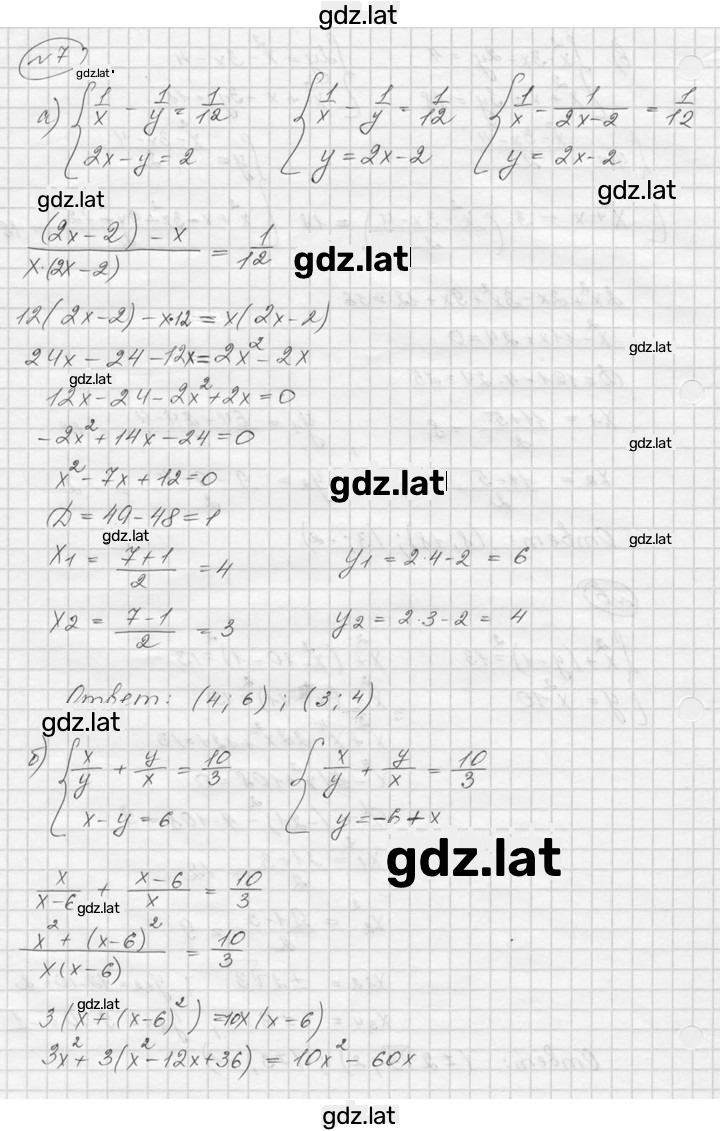 gdz.lat
№7
gdz.lat
а) { 1/x - 1/y = 1/12    { 1/x - 1/y = 1/12    { 1/x - 1/(2x-2) = 1/12
2x - y = 2    y = 2x - 2    y = 2x - 2
gdz.lat
gdz.lat
((2x - 2) - x)/(x·(2x - 2)) = 1/12
gdz.lat
12(2x - 2) - x·12 = x(2x - 2)
24x - 24 - 12x = 2x² - 2x
gdz.lat
gdz.lat
12x - 24 - 2x² + 2x = 0
-2x² + 14x - 24 = 0
gdz.lat
x² - 7x + 12 = 0
gdz.lat
D = 49 - 48 = 1
gdz.lat
gdz.lat
x1 = (7+1)/2 = 4    y1 = 2·4 - 2 = 6
x2 = (7-1)/2 = 3    y2 = 2·3 - 2 = 4
Ответ: (4; 6) ; (3; 4)
gdz.lat
б) { x/y + y/x = 10/3    { x/y + y/x = 10/3
x - y = 6    y = -6 + x
gdz.lat
x/(x-6) + (x-6)/x = 10/3
gdz.lat
(x² + (x-6)²)/(x(x-6)) = 10/3
gdz.lat
3(x + (x-6)²) = 10x(x-6)
3x² + 3(x² - 12x + 36) = 10x² - 60x
gdz.lat